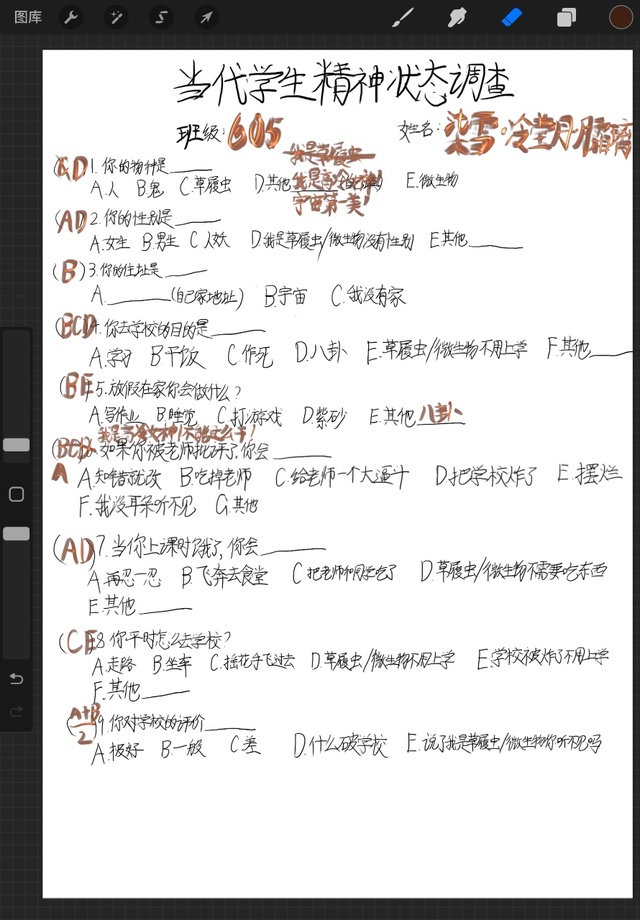 图库
当代学生精神状态调查
班级: 605 姓名: 染雪·冷堂月
我是草履虫
(CD)1.你的物种是____
A.人 B.鬼 C.草履虫 D.其他 我是高冷女神 E.微生物
宇宙第一美!
(AD)2.你的性别是____
A.女生 B.男生 C.人妖 D.我是草履虫/微生物没有性别 E.其他____
(B)3.你的住址是____
A.____(自己家地址) B.宇宙 C.我没有家
(BCD)4.你去学校的目的是____
A.学习 B.干饭 C.作死 D.八卦 E.草履虫/微生物不用上学 F.其他____
(BE)5.放假在家你会做什么?
A.写作业 B.睡觉 C.打游戏 D.紫砂 E.其他 八卦
我是高冷女神!不能这么干!
6.如果你被老师批评了,你会____
A A.知错就改 B.吃掉老师 C.给老师一个大逼斗 D.把学校炸了 E.摆烂
F.我没耳朵听不见 G.其他
(AD)7.当你上课时饿了,你会____
A.再忍一忍 B.飞奔去食堂 C.把老师和同学吃了 D.草履虫/微生物不需要吃东西
E.其他____
(CE)8.你平时怎么去学校?
A.走路 B.坐车 C.插花手飞过去 D.草履虫/微生物不用上学 E.学校被炸了不用上学
F.其他____
(A+B/2)9.你对学校的评价____
A.极好 B.一般 C.差 D.什么破学校 E.说了我是草履虫/微生物你听不见吗